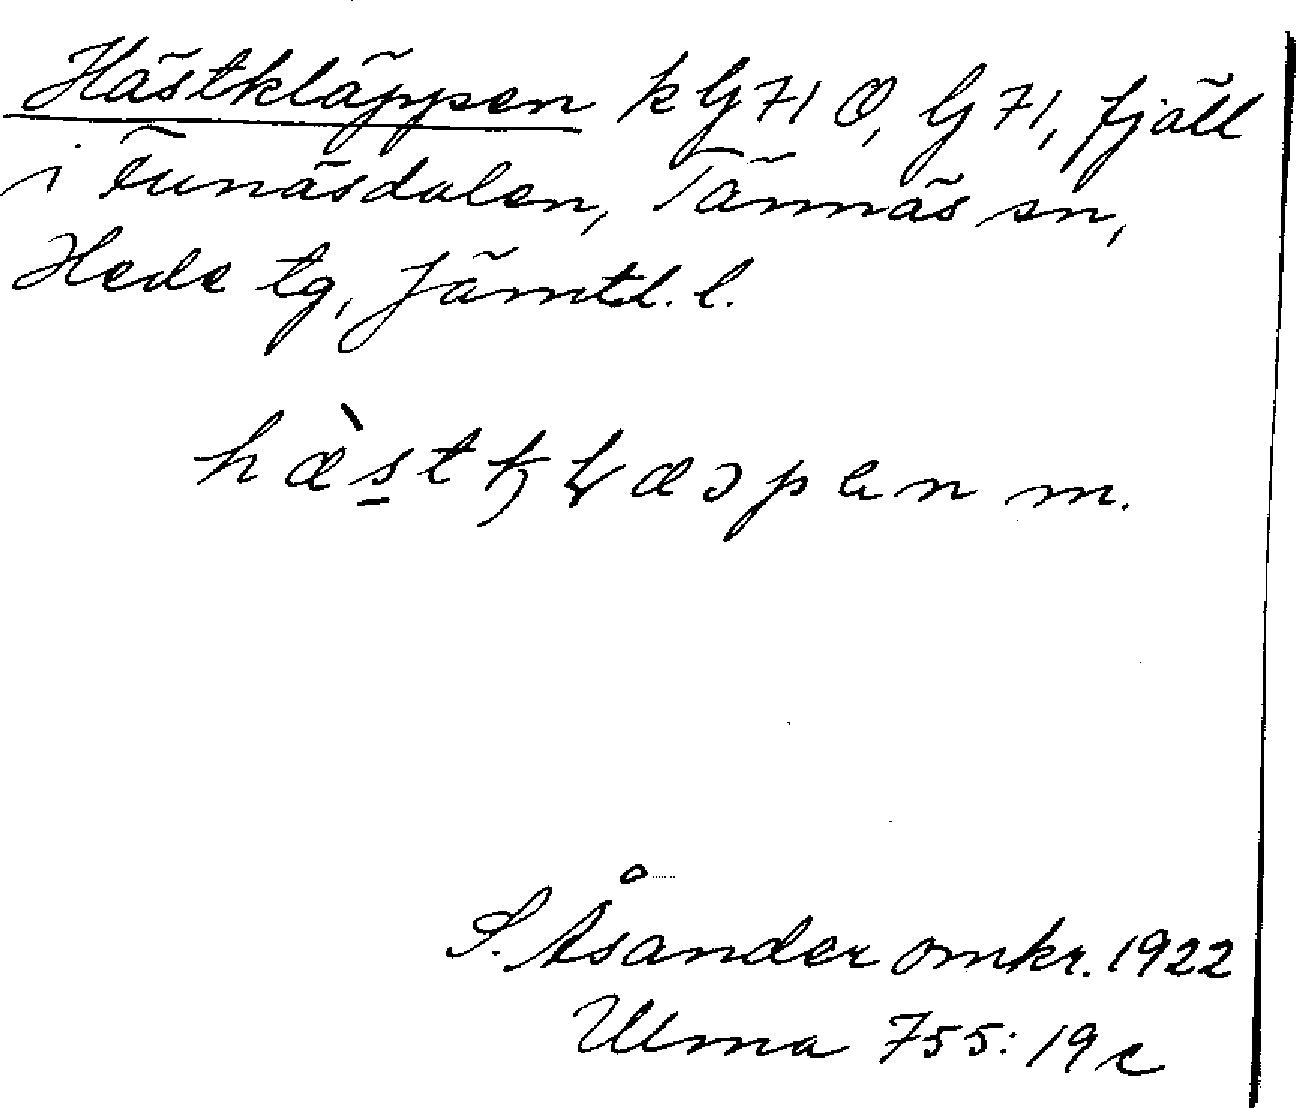 Hästkläppen k G 71 O, G 71, fjäll
i Funäsdalen, Tännäs sn,
Hede tg, Jämtl. l.
hæ̀st m.
S. Åsander omkr. 1922
Ulma 755: 19 c